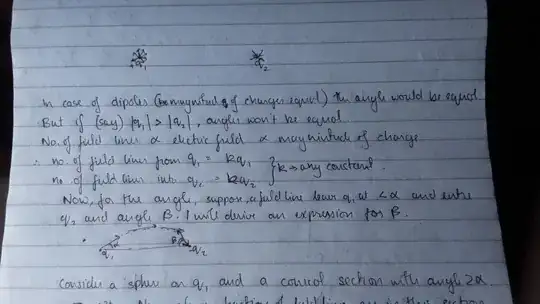 q₁ q₂
In case of dipoles (magnitude of charges equal) angle would be equal
But if (say) |q₁| > |q₂|, angles won't be equal
No. of field lines ∝ electric field ∝ magnitude of charge
∴ no. of field lines from q₁ = kq₁ } k → any constant.
no of field lines into q₂ = kq₂
Now, for the angle, suppose, a field line leaves q₁ at <α and enters
q₂ and angle β. I will derive an expression for β.
α β
q₁ -q₂
Consider a sphere on q₁ and a conical section with angle 2α